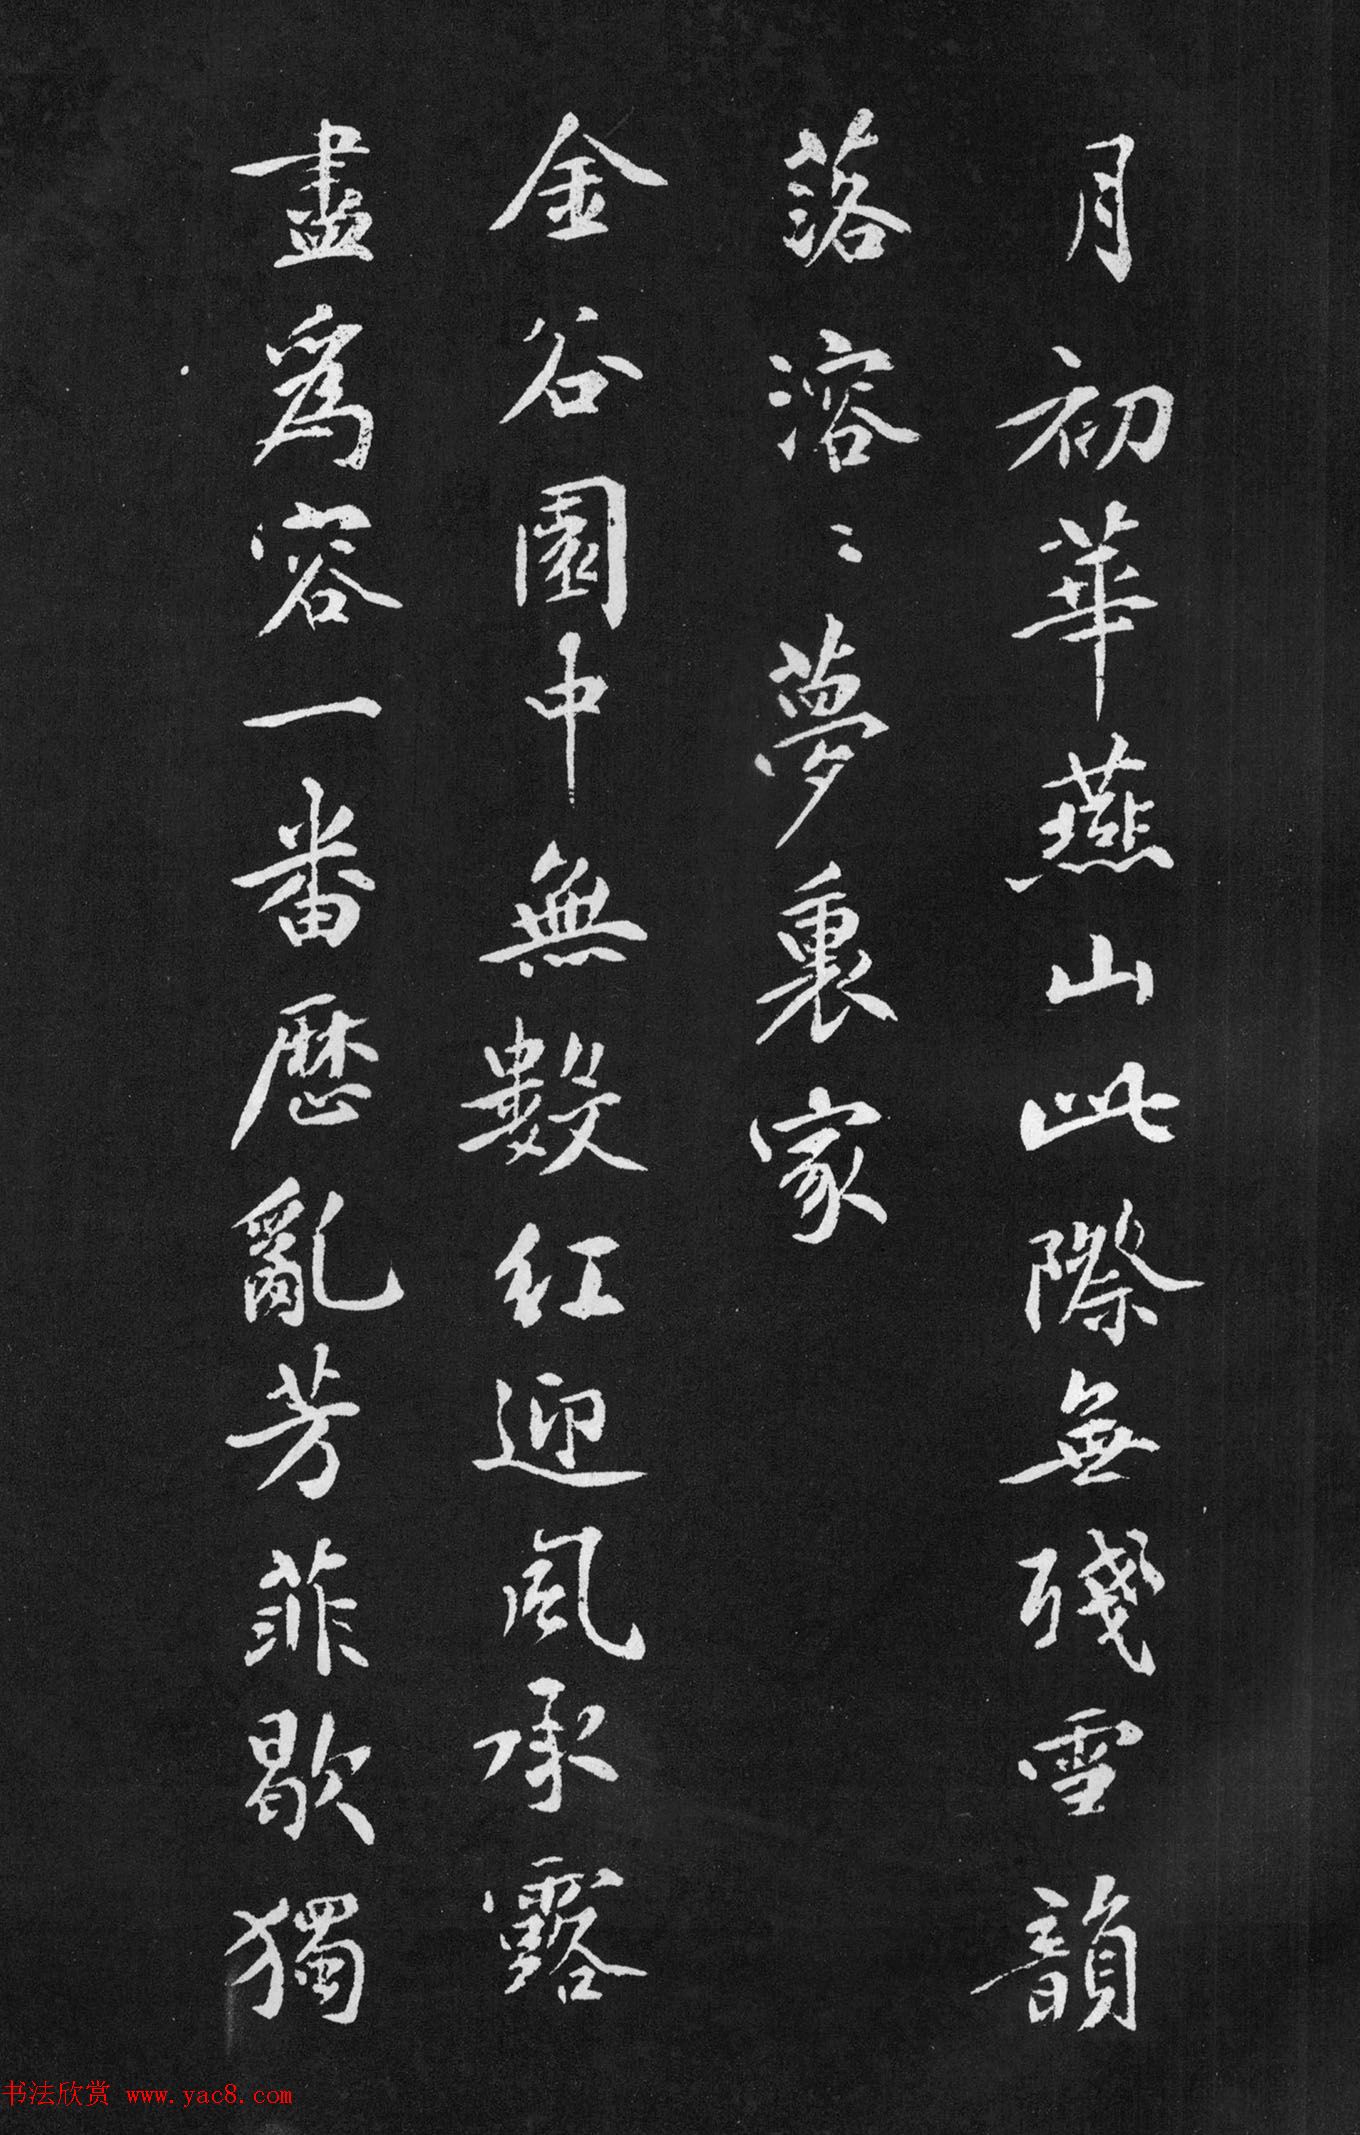 月初華燕山此際無殘雪韻
落溶〻夢裏家
金谷園中無數紅迎風承露
盡為容一番歷亂芳菲歇獨
书法欣赏 www.yac8.com